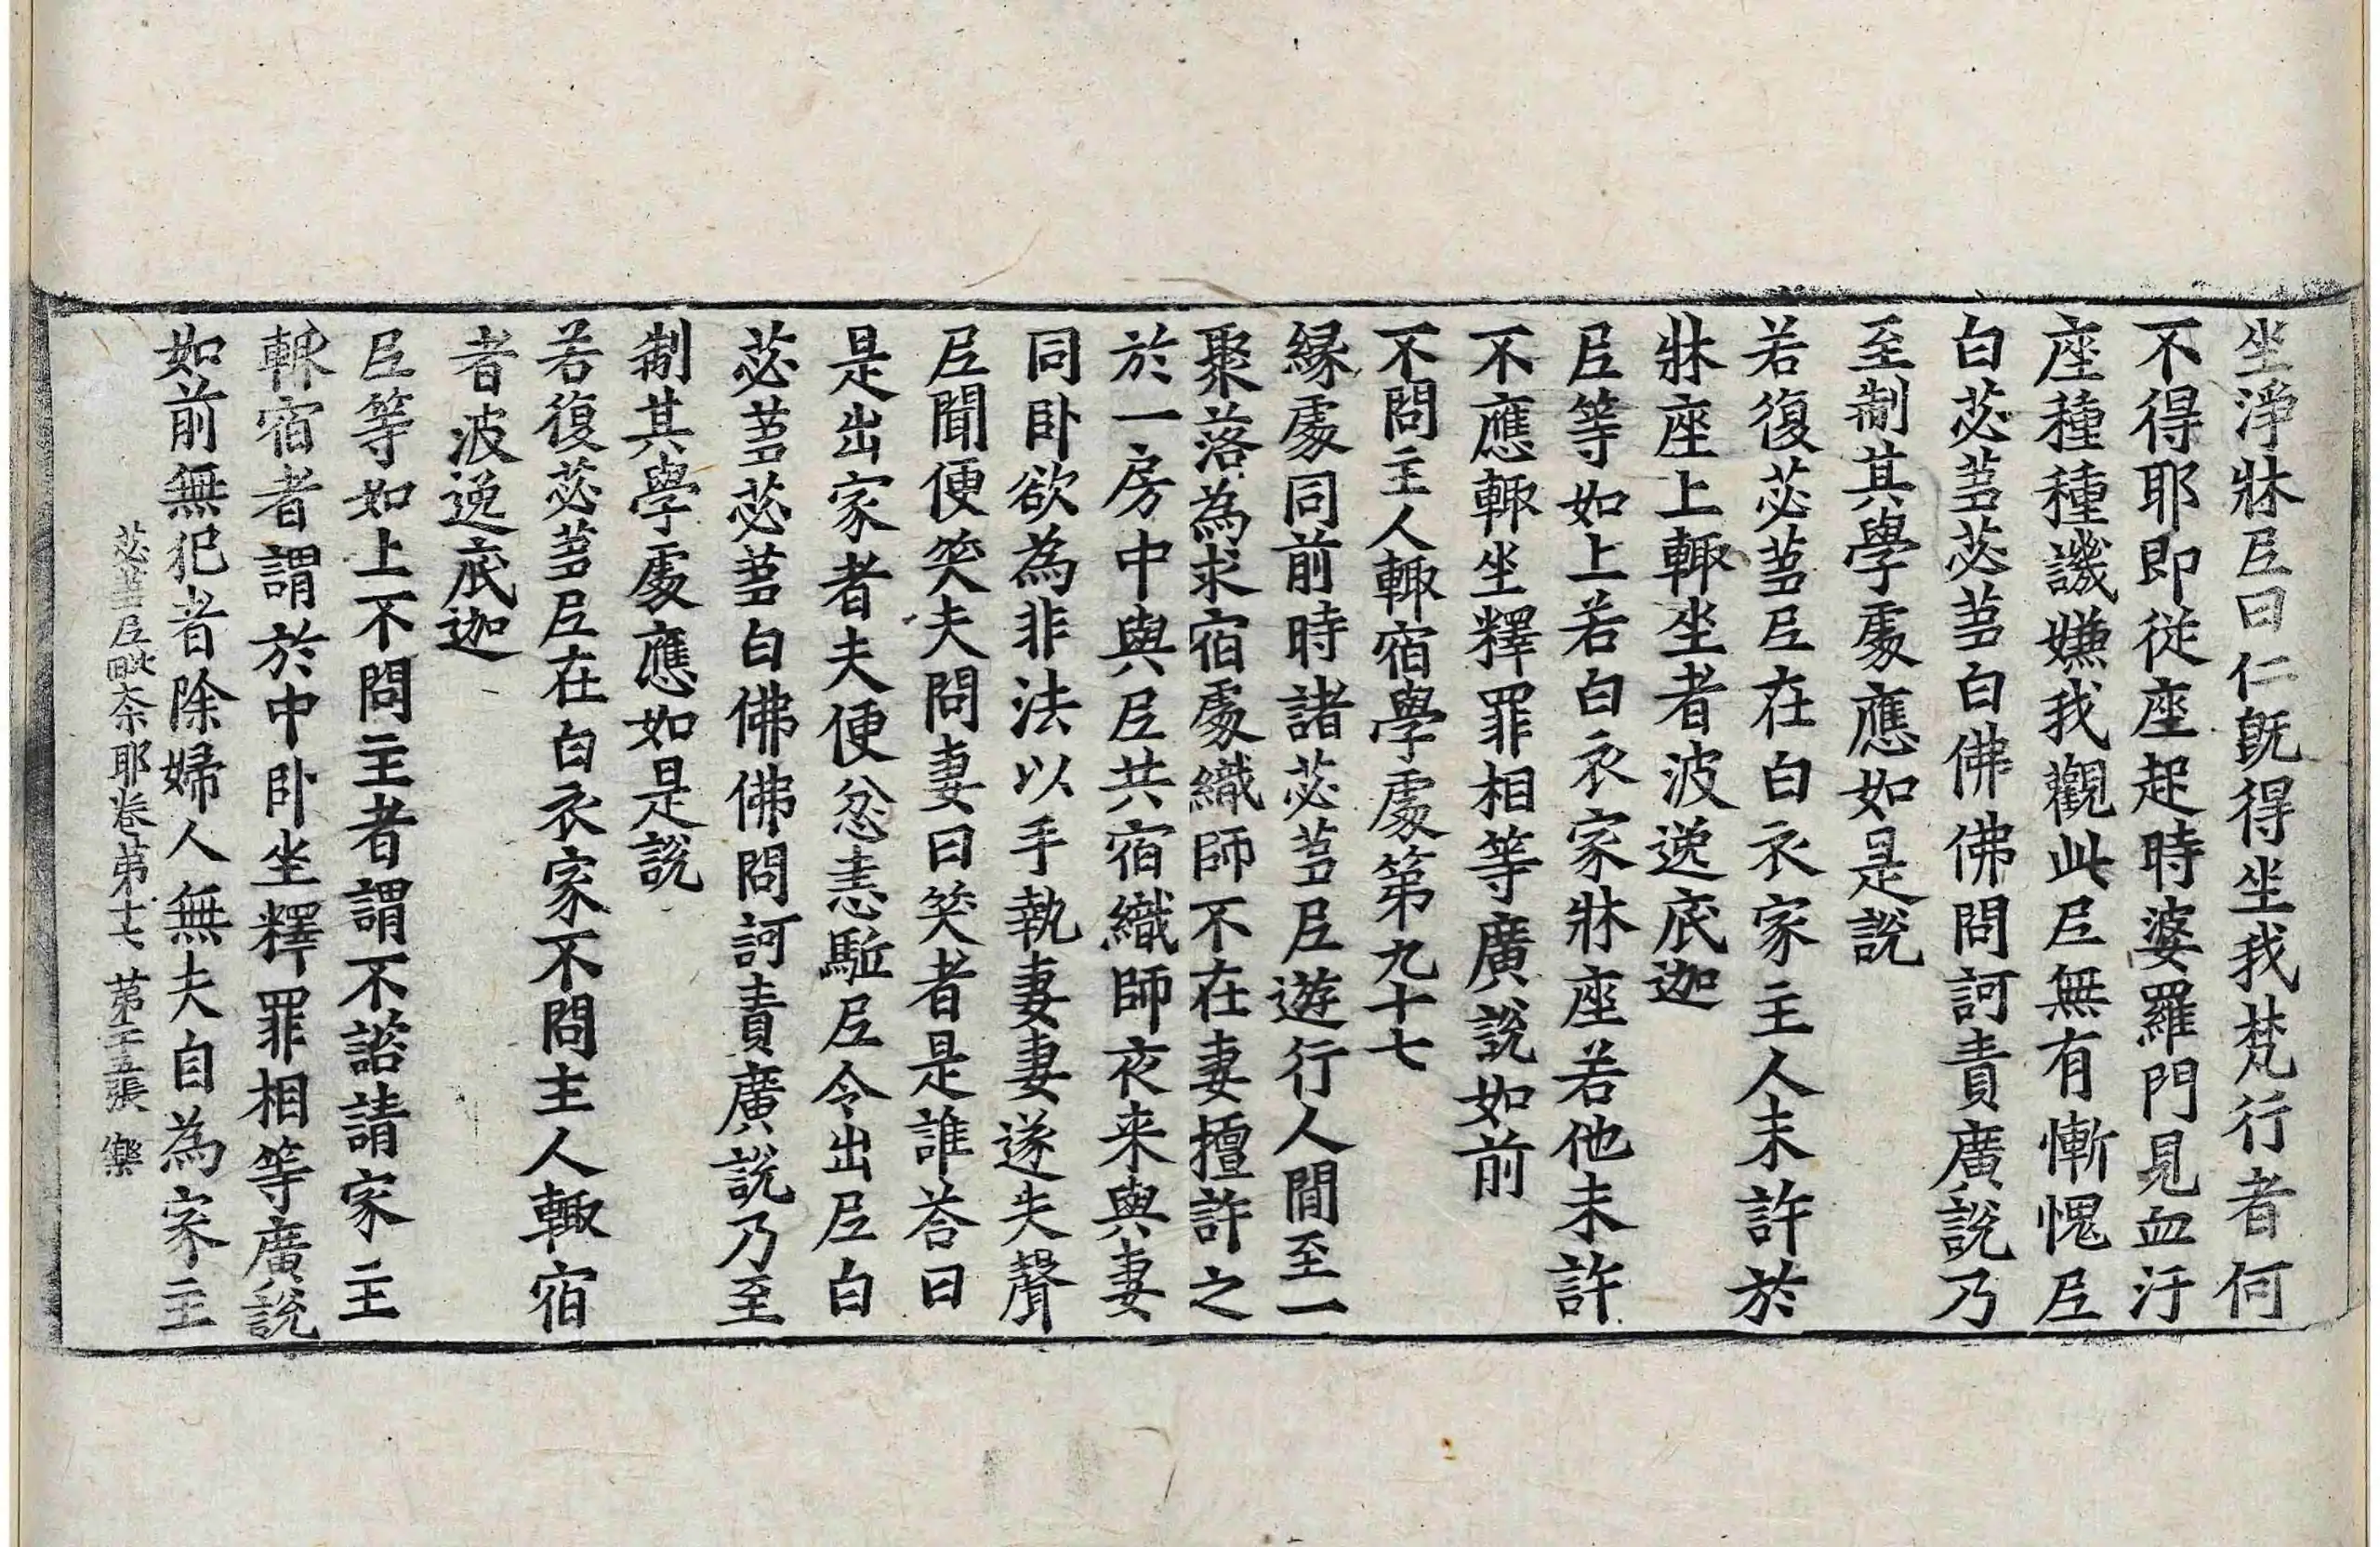 坐淨牀尼曰仁既得坐我梵行者何
不得耶即從座起時婆羅門見血汙
座種種譏嫌我觀此尼無有慚愧尼
白苾芻苾芻白佛佛問訶責廣說乃
至制其學處應如是說
若復苾芻尼在白衣家主人未許於
牀座上輙坐者波逸底迦
尼等如上若白衣家牀座若他未許
不應輙坐釋罪相等廣說如前
不問主人輙宿學處第九十七
緣處同前時諸苾芻尼遊行人間至一
聚落為求宿處織師不在妻擅許之
於一房中與尼共宿織師夜來與妻
同卧欲為非法以手執妻妻遂失聲
尼聞便笑夫問妻曰笑者是誰荅曰
是出家者夫便忿恚驅尼令出尼白
苾芻苾芻白佛佛問訶責廣說乃至
制其學處應如是說
若復苾芻尼在白衣家不問主人輙宿
者波逸底迦
尼等如上不問主者謂不諮請家主
輙宿者謂於中卧坐釋罪相等廣說
如前無犯者除婦人無夫自為家主
苾芻尼毗奈耶卷第十七 第二十五張 樂